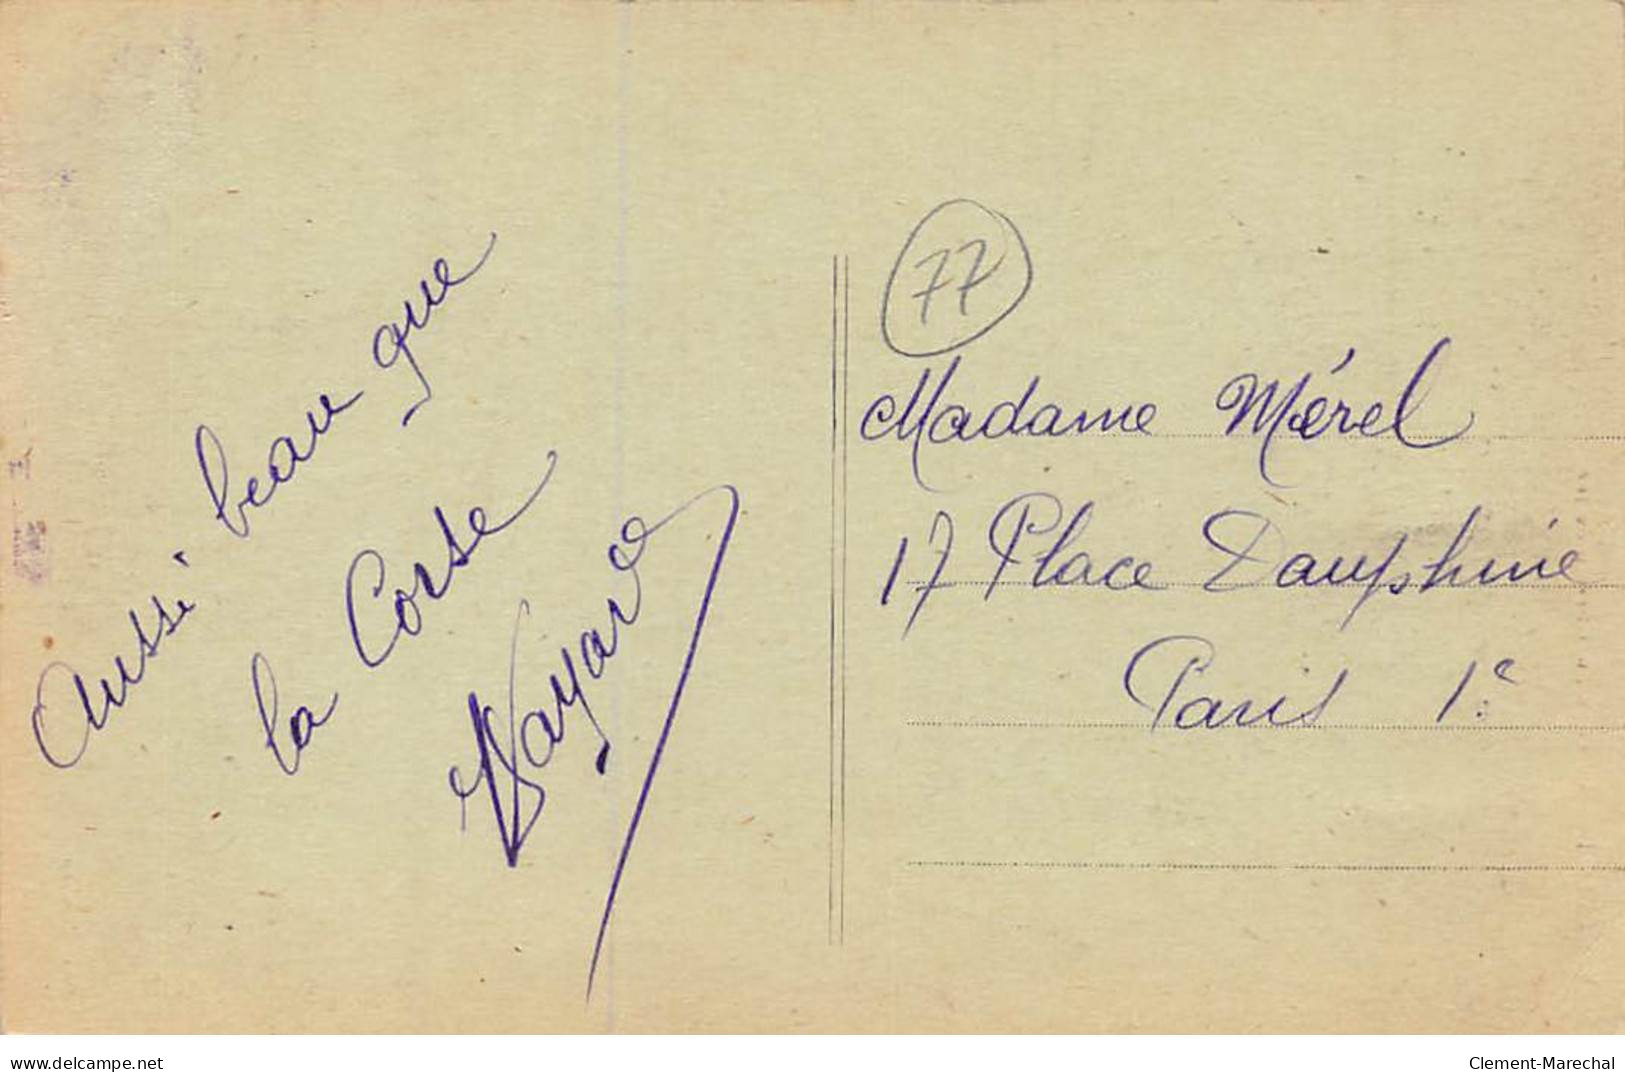 Aussi beau que
la Corse
77
Madame Mérel
17 Place Dauphine
Paris 1e
www.delcampe.net
Clement-Marechal